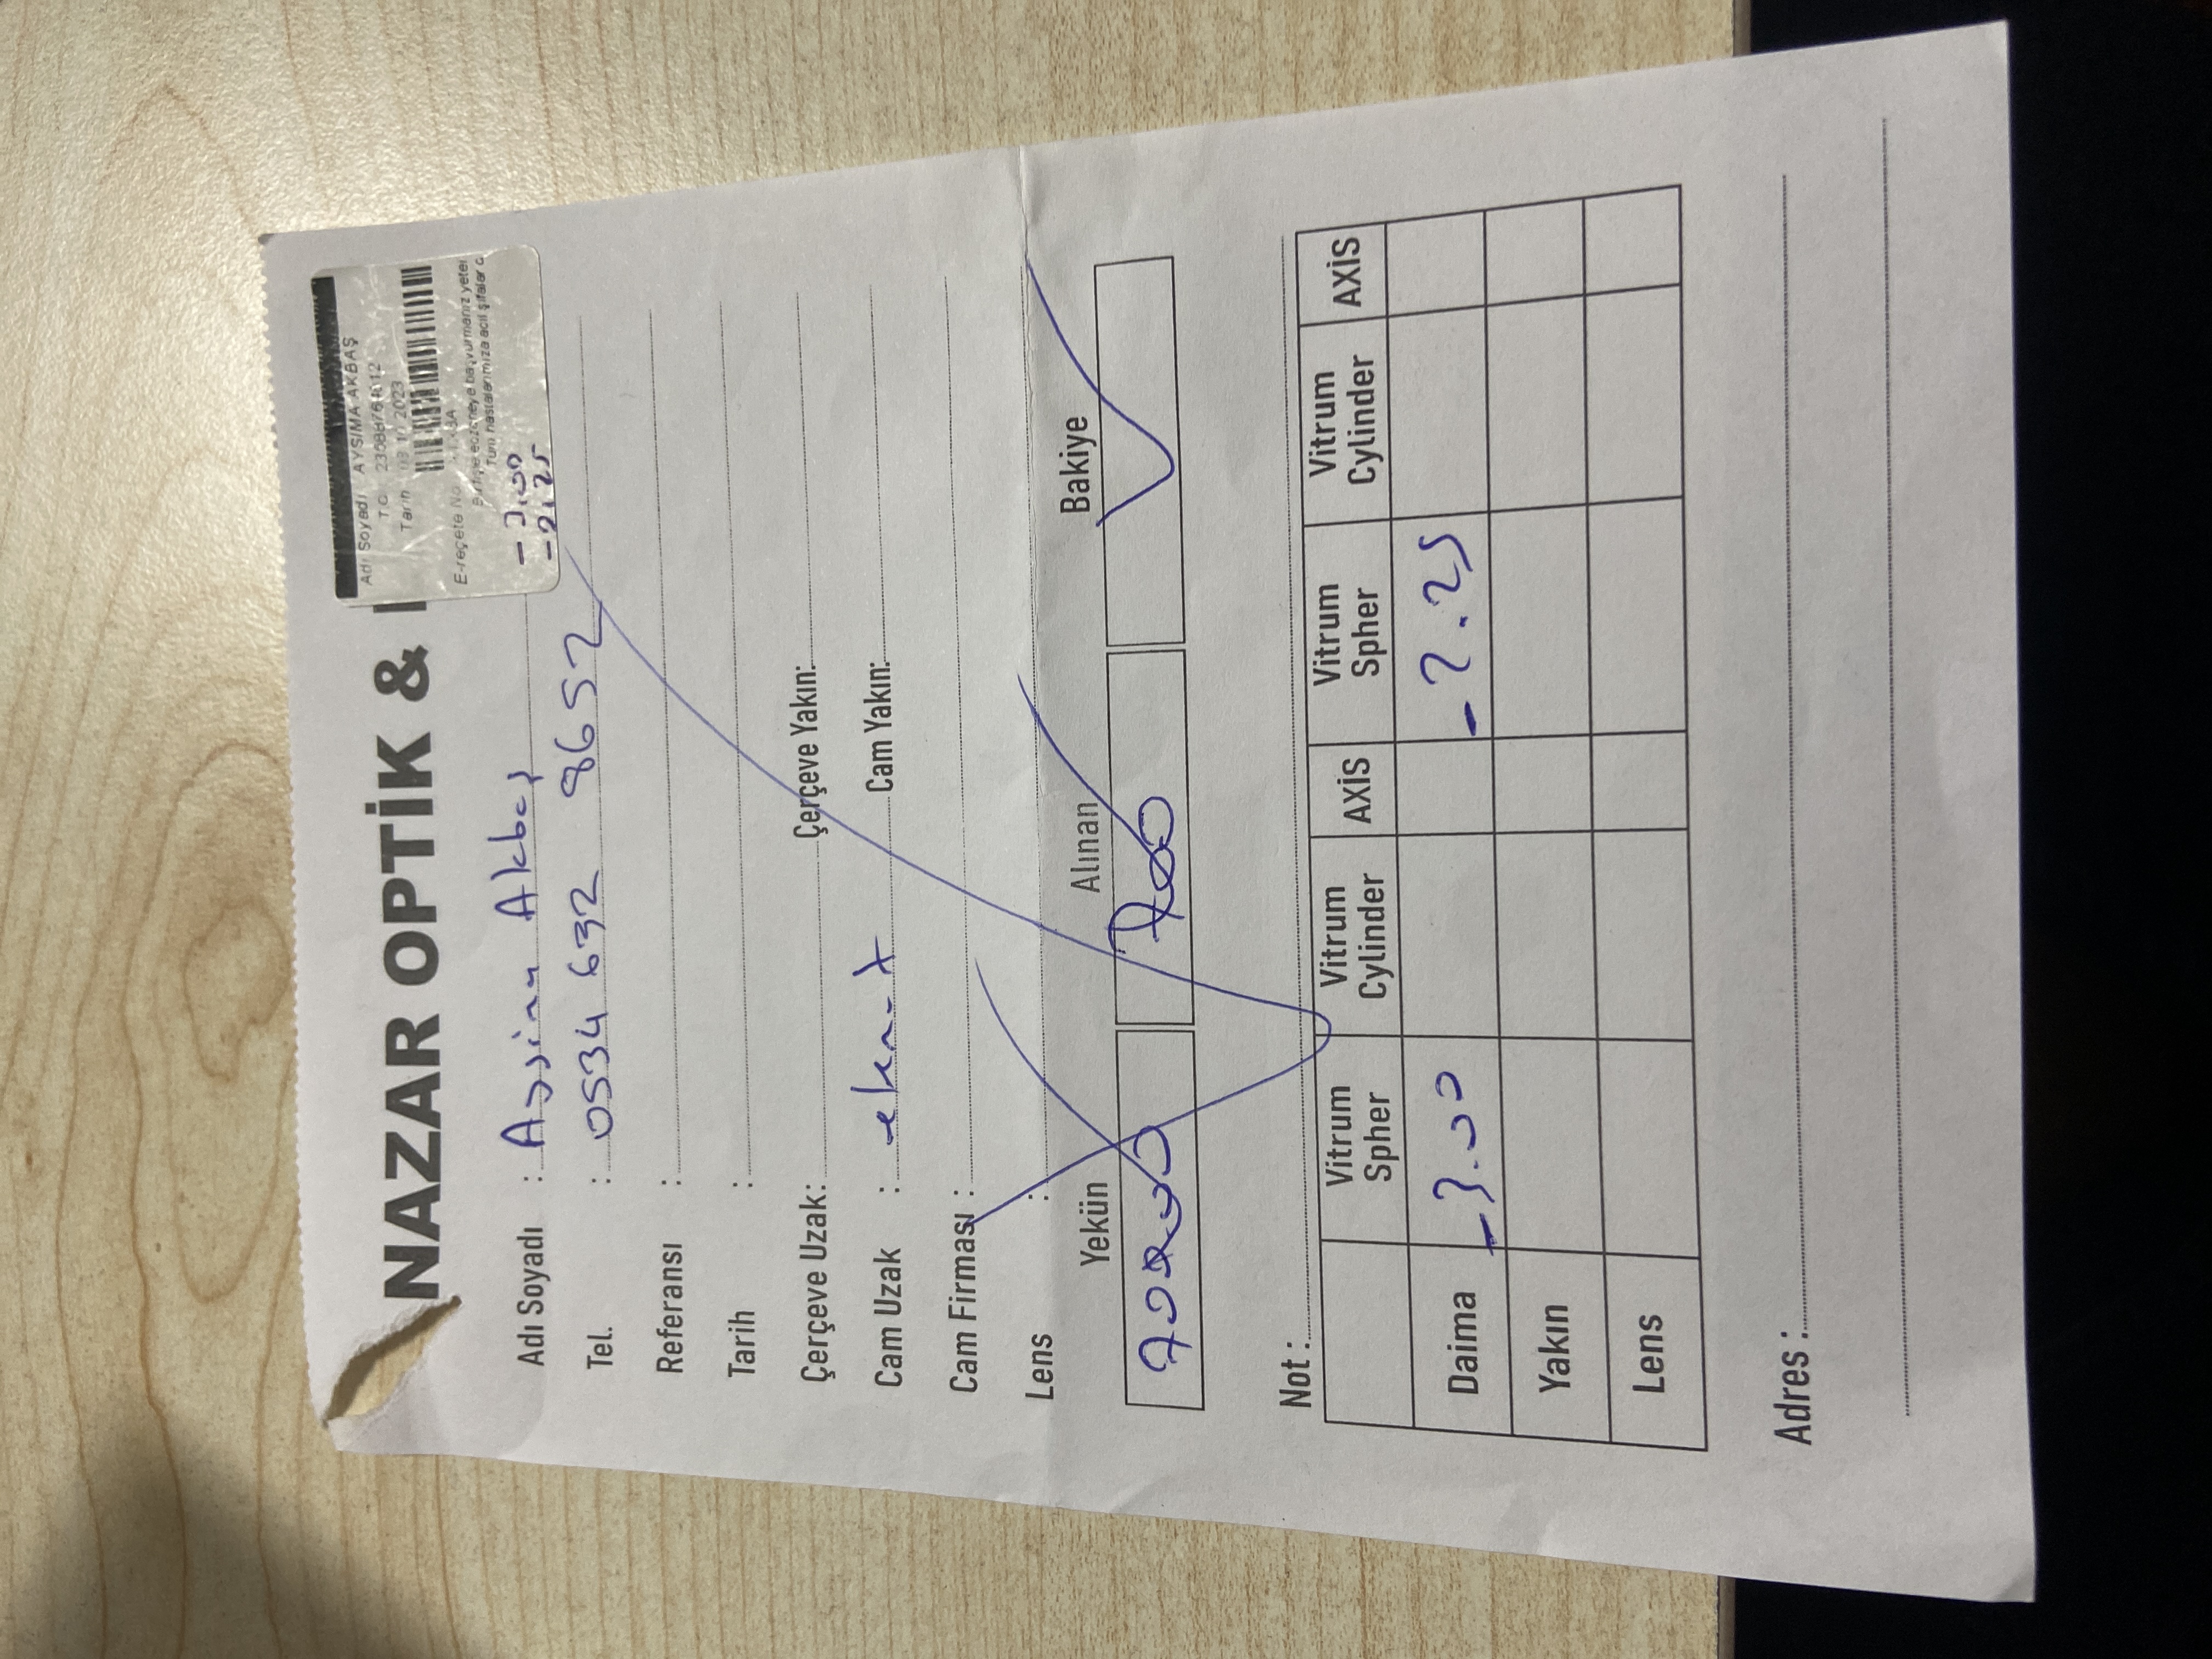 NAZAR OPTİK &
Adı Soyadı AYSIMA AKBAŞ
T.C.
Tarih 03 10 2023
E-reçete No
Bu fişle eczaneye başvurmanız yeter
Tüm hastalarımıza acil şifalar d
- 3,00
- 2,25
Adı Soyadı : Aysima Akbaş
Tel. : 0534 632 8652
Referansı :
Tarih :
Çerçeve Uzak: Çerçeve Yakın:
Cam Uzak : Cam Yakın:
Cam Firması :
Lens :
Yekün Alınan Bakiye
700
Not :
Vitrum Spher Vitrum Cylinder AXİS Vitrum Spher Vitrum Cylinder AXİS
Daima -3.00 -2.25
Yakın
Lens
Adres :